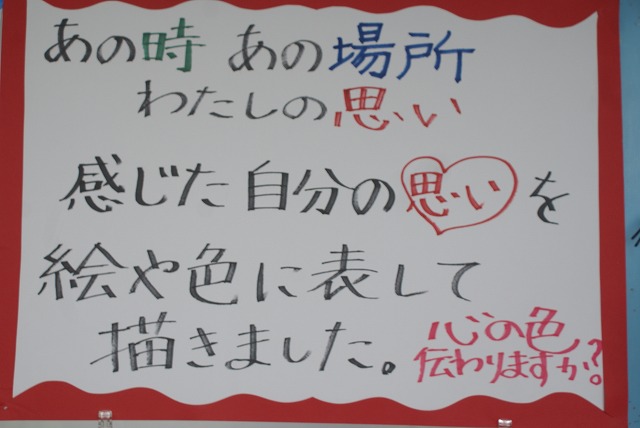 あの時 あの場所
わたしの思い
感じた自分の思いを
絵や色に表して
描きました。
心の色
伝わりますか?